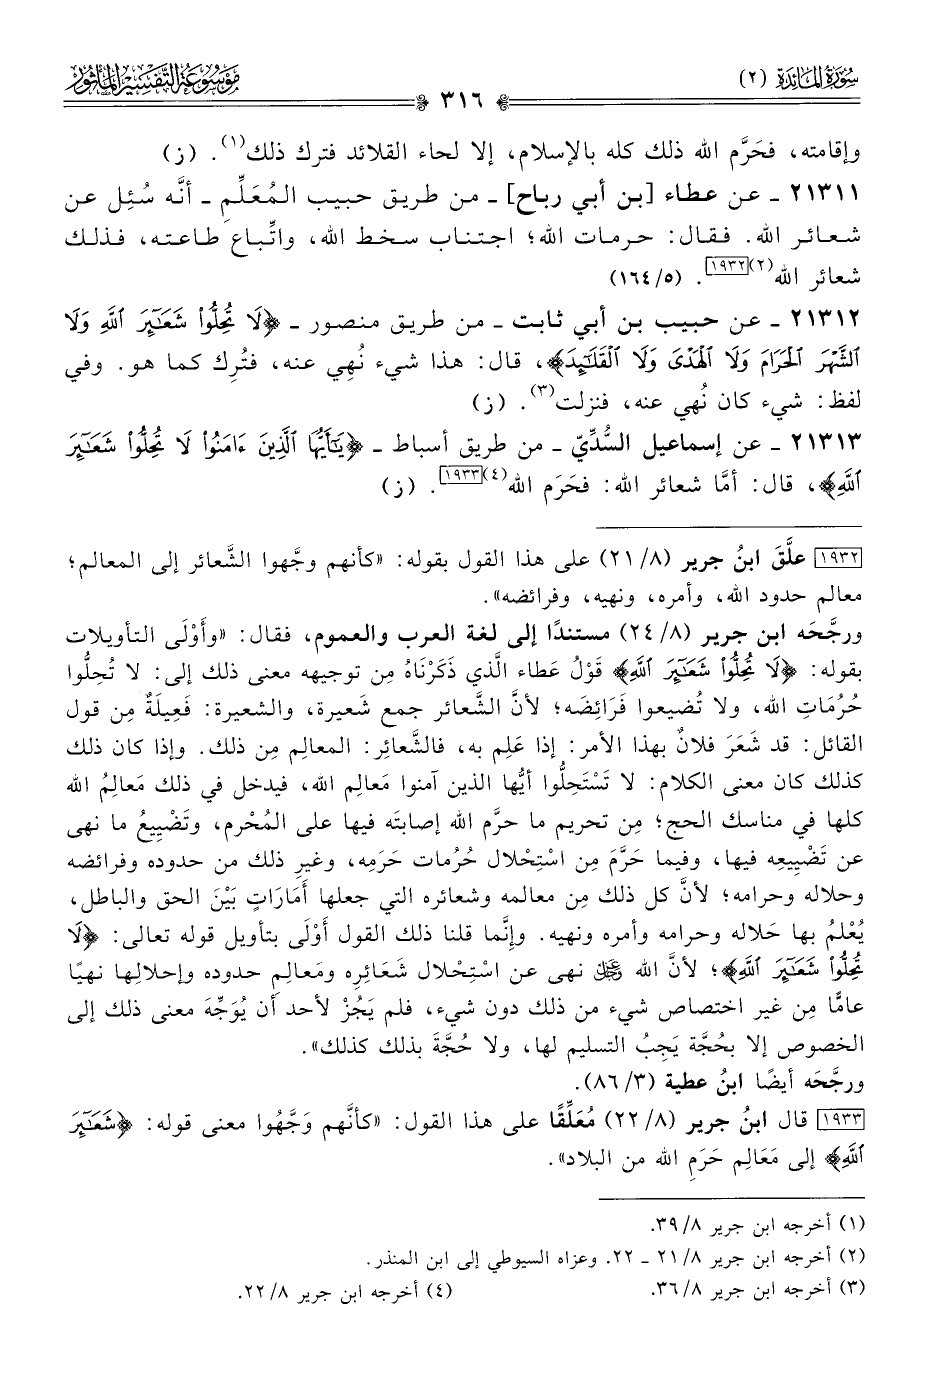 سُورَةُ المَائدة (٢)
٣١٦
مَوْسُوعَة التَّفْسِير المَأْثُور
وإقامته، فحَرَّم الله ذلك كله بالإسلام، إلا لحاء القلائد فترك ذلك(١). (ز)
٢١٣١١ ـ عن عطاء [بن أبي رباح] ـ من طريق حبيب المُعَلِّم ـ أنَّه سُئِل عن
شعائر الله. فقال: حرمات الله؛ اجتناب سخط الله، واتِّباعَ طاعته، فذلك
شعائر الله(٢)[١٩٣٢]. (١٦٤/٥)
٢١٣١٢ ـ عن حبيب بن أبي ثابت ـ من طريق منصور ـ ﴿لَا تُحِلُّوا۟ شَعَـٰٓئِرَ ٱللَّهِ وَلَا
ٱلشَّهْرَ ٱلْحَرَامَ وَلَا ٱلْهَدْىَ وَلَا ٱلْقَلَـٰٓئِدَ﴾، قال: هذا شيء نُهِي عنه، فتُرِك كما هو. وفي
لفظ: شيء كان نُهي عنه، فنزلت(٣). (ز)
٢١٣١٣ ـ عن إسماعيل السُّدِّيّ ـ من طريق أسباط ـ ﴿يَـٰٓأَيُّهَا ٱلَّذِينَ ءَامَنُوا۟ لَا تُحِلُّوا۟ شَعَـٰٓئِرَ
ٱللَّهِ﴾، قال: أمَّا شعائر الله: فحَرَم الله(٤)[١٩٣٣]. (ز)
[١٩٣٢] علَّقَ ابنُ جرير (٢١/٨) على هذا القول بقوله: «كأنهم وجَّهوا الشَّعائر إلى المعالم؛
معالم حدود الله، وأمره، ونهيه، وفرائضه».
ورجَّحَه ابن جرير (٢٤/٨) مستندًا إلى لغة العرب والعموم، فقال: «وأَوْلَى التأويلات
بقوله: ﴿لَا تُحِلُّوا۟ شَعَـٰٓئِرَ ٱللَّهِ﴾ قَوْلُ عطاء الَّذي ذَكَرْنَاهُ مِن توجيهه معنى ذلك إلى: لا تُحِلُّوا
حُرُمَاتِ الله، ولا تُضيعوا فَرَائِضَه؛ لأنَّ الشَّعائر جمع شَعيرة، والشعيرة: فَعِيلَةٌ مِن قول
القائل: قد شَعَرَ فلانٌ بهذا الأمر: إذا عَلِم به، فالشَّعائِر: المعالم مِن ذلك. وإذا كان ذلك
كذلك كان معنى الكلام: لا تَسْتَحِلُّوا أيُّها الذين آمنوا مَعالِم الله، فيدخل في ذلك مَعالِمُ الله
كلها في مناسك الحج؛ مِن تحريم ما حرَّم الله إصابتَه فيها على المُحْرم، وتَضْيِيعُ ما نهى
عن تَضْيِيعِه فيها، وفيما حَرَّمَ مِن اسْتِحْلال حُرُمات حَرَمِه، وغيرِ ذلك من حدوده وفرائضه
وحلاله وحرامه؛ لأنَّ كل ذلك مِن معالمه وشعائره التي جعلها أَمَارَاتٍ بَيْنَ الحق والباطل،
يُعْلَمُ بها حَلاله وحرامه وأمره ونهيه. وإنَّما قلنا ذلك القول أَوْلَى بتأويل قوله تعالى: ﴿لَا
تُحِلُّوا۟ شَعَـٰٓئِرَ ٱللَّهِ﴾؛ لأنَّ الله ﷿ نهى عن اسْتِحْلال شَعَائِرِه ومَعالمِ حدوده وإحلالها نهيًا
عامًّا مِن غير اختصاص شيء من ذلك دون شيء، فلم يَجُزْ لأحد أن يُوَجِّهَ معنى ذلك إلى
الخصوص إلا بحُجَّة يَجِبُ التسليم لها، ولا حُجَّةَ بذلك كذلك».
ورجَّحَه أيضًا ابنُ عطية (٨٦/٣).
[١٩٣٣] قال ابنُ جرير (٢٢/٨) مُعَلِّقًا على هذا القول: «كأنَّهم وَجَّهُوا معنى قوله: ﴿شَعَـٰٓئِرَ
ٱللَّهِ﴾ إلى مَعَالِم حَرَمِ الله من البلاد».
(١) أخرجه ابن جرير ٣٩/٨.
(٢) أخرجه ابن جرير ٢١/٨ ـ ٢٢. وعزاه السيوطي إلى ابن المنذر.
(٣) أخرجه ابن جرير ٣٦/٨. (٤) أخرجه ابن جرير ٢٢/٨.